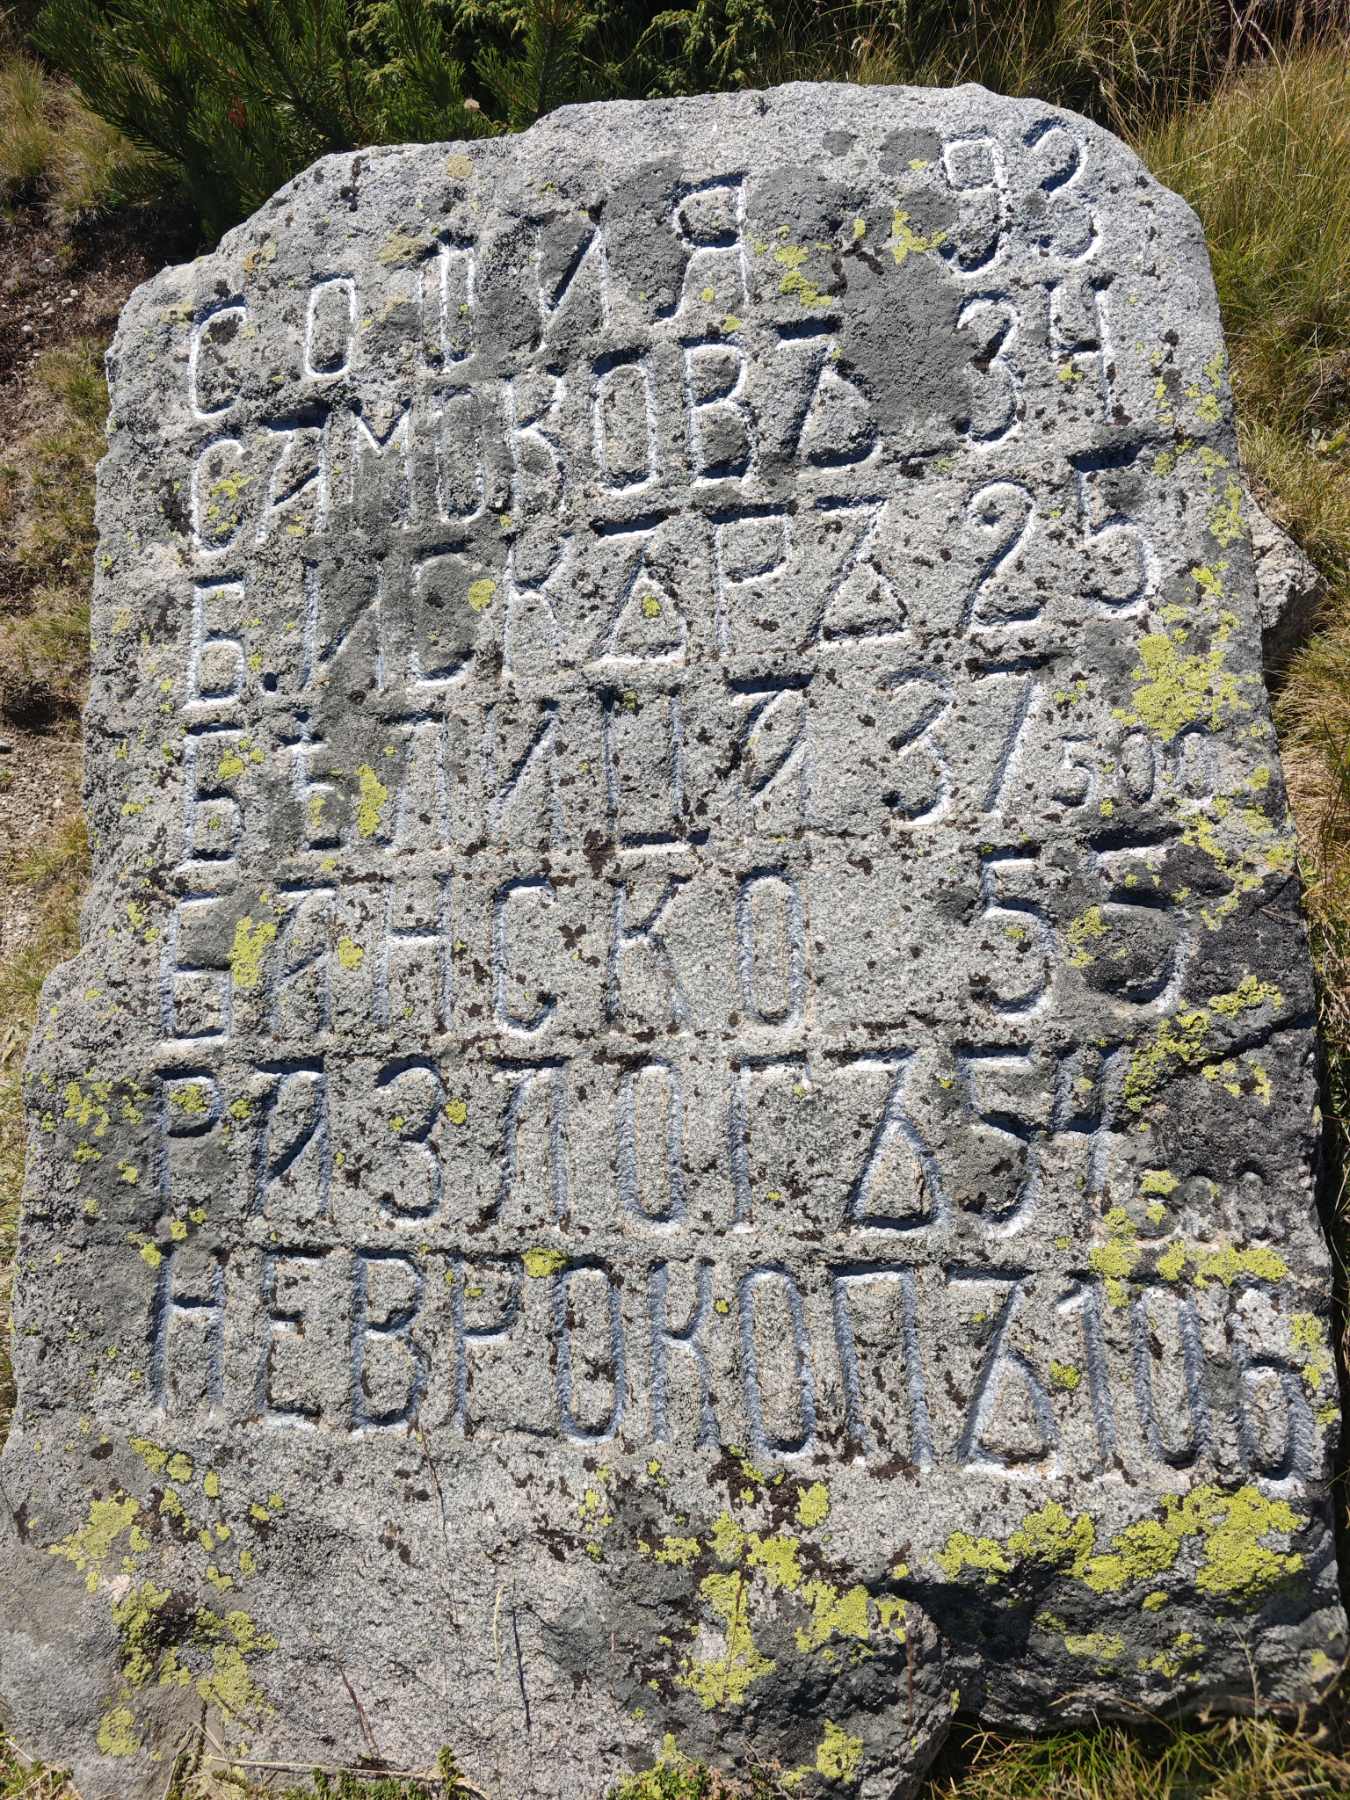 СОФИЯ 93
САМОКОВЪ 34
Б.ИСКЪРЪ 25
БѢЛИЦА 37/500
БАНСКО 55
РАЗЛОГЪ 54
НЕВРОКОПЪ 106